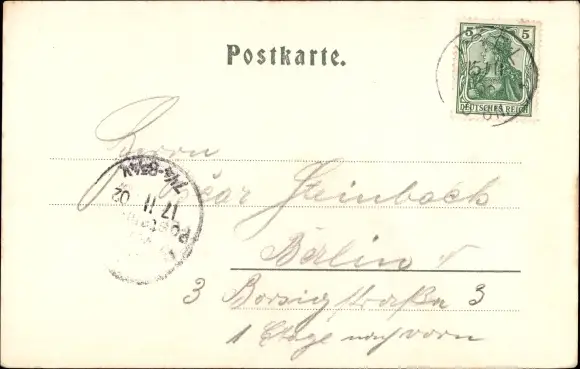 Postkarte.
5 5
DEUTSCHES REICH
Herrn
Oscar Steinbach
Berlin
3 Borsigstraße 3
1 Etage nach vorn
7¼-8½V.
17 11 02